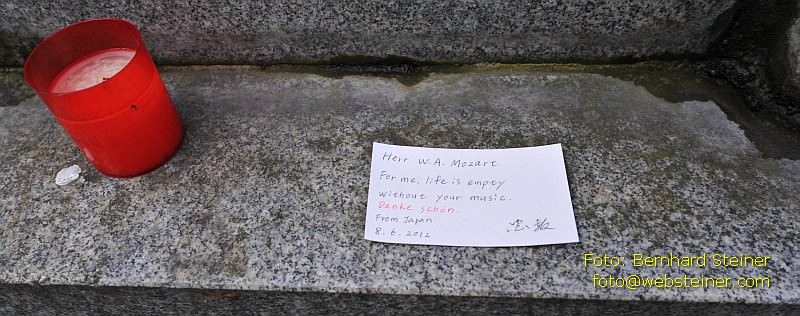 Herr W. A. Mozart
For me, life is empty
without your music.
Danke schön.
From Japan
8. 6. 2012
Foto: Bernhard Steiner
foto@websteiner.com